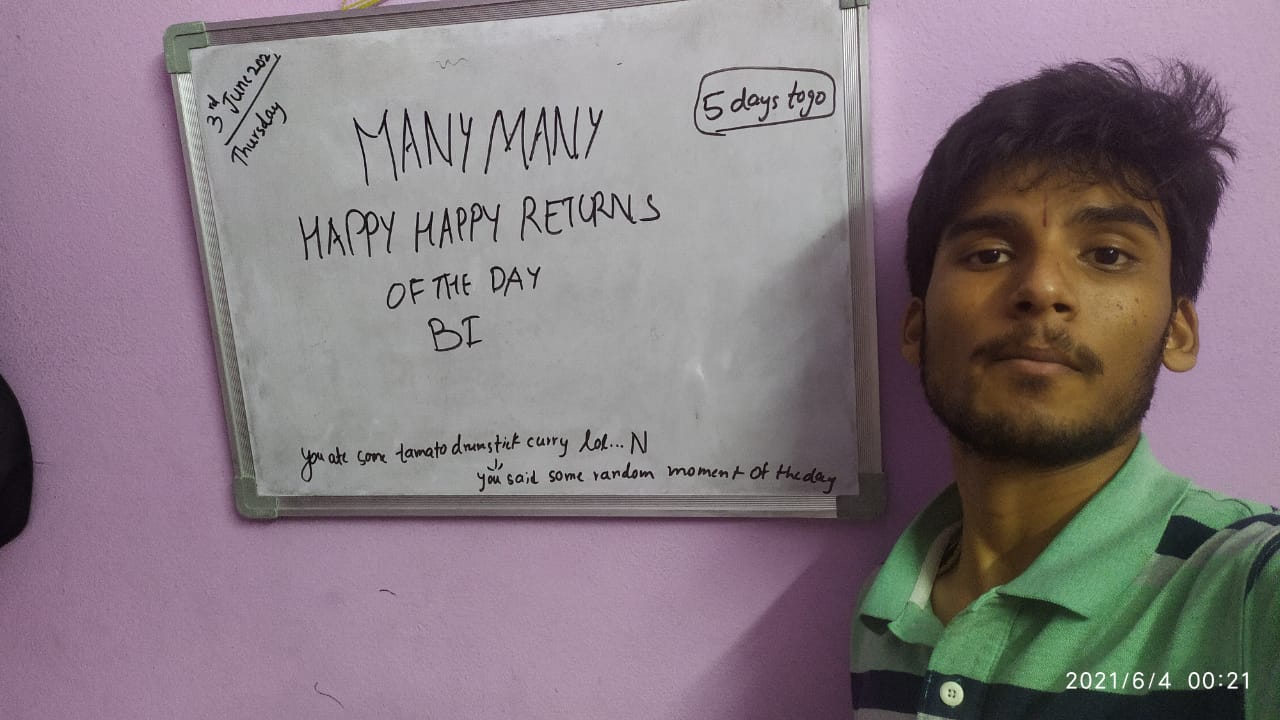 3rd June 202
Thursday
5 days to go
MANY MANY
HAPPY HAPPY RETURNS
OF THE DAY
BI
You ate some tamato drumstick curry lol... N
you said some random moment of the day
2021/6/4 00:21